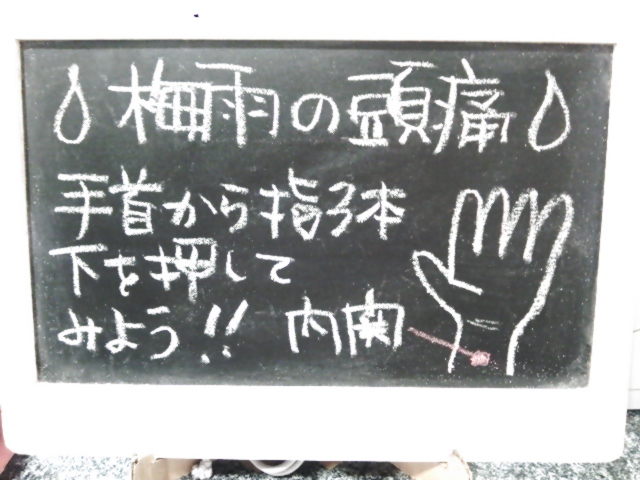 梅雨の頭痛
手首から指3本
下を押して
みよう!!
内関